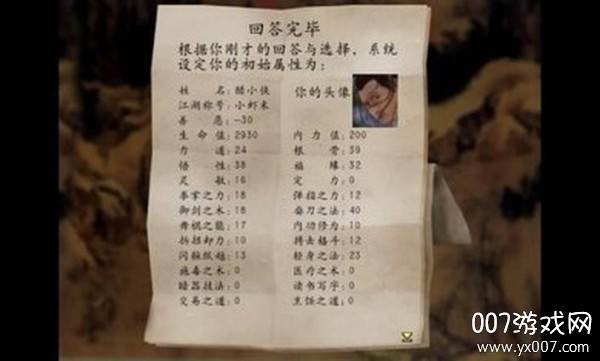 回答完毕
根据你刚才的回答与选择，系统
设定你的初始属性为：
姓 名：醋小侠 你的头像
江湖称号：小虾米
善 恶：-30
生 命 值：2930 内 力 值：200
力 道：24 根 骨：39
悟 性：38 福 缘：32
灵 敏：16 定 力：0
拳掌之力：18 弹指之力：12
御剑之术：18 耍刀之法：40
舞棍之能：17 内功修为：10
拆招卸力：10 搏击格斗：12
闪躲纵越：13 轻身之法：23
施毒之术：0 医疗之术：0
暗器技法：0 读书写字：0
交易之道：0 烹饪之道：0
007游戏网
www.yx007.com